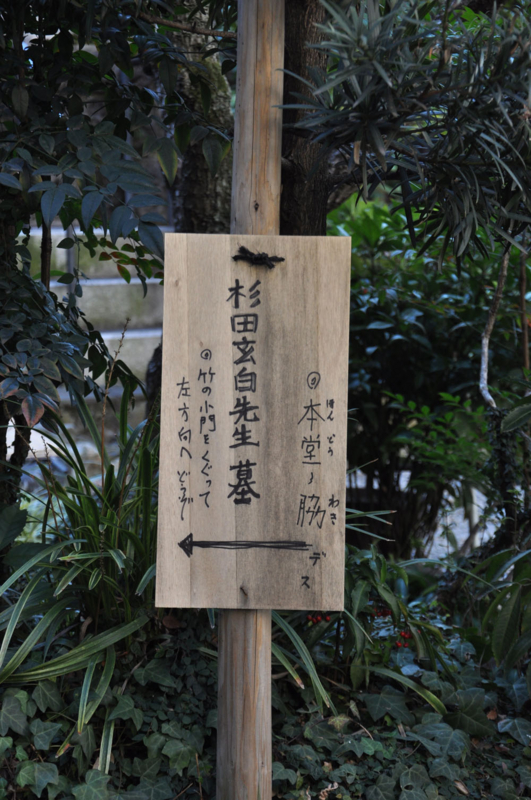 ◎本堂ノ脇デス
ほんどう わき
杉田玄白先生墓
◎竹の小門をくぐって
左方向へどうぞ